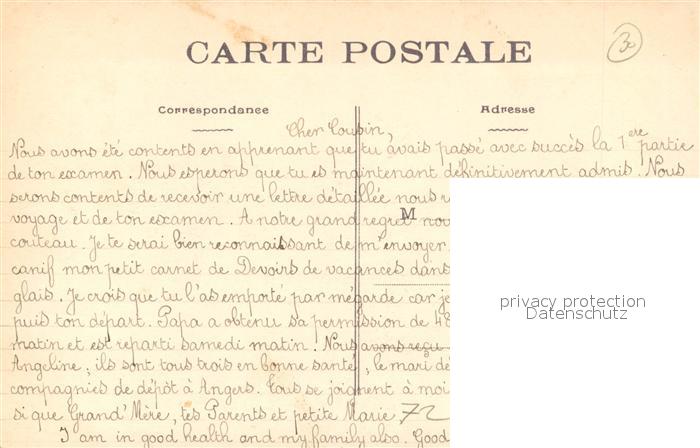 30
CARTE POSTALE
Correspondance
Adresse
Cher Cousin,
Nous avons été contents en apprenant que tu avais passé avec succès la 1ere partie
de ton examen. Nous esperons que tu es maintenant définitivement admis. Nous
serons contents de recevoir une lettre détaillée nous r
voyage et de ton examen. A notre grand regret nou
M
couteau. Je te serai bien reconnaissant de m'envoyer
canif mon petit carnet de Devoirs de vacances dans
glais. Je crois que tu l'as emporté par mégarde car je
puis ton départ. Papa a obtenu sa permission de 48
matin et est reparti samedi matin. Nous avons reçu
Angeline, ils sont tous trois en bonne santé, le mari de
compagnies de dépôt à Angers. Tous se joignent à moi
si que Grand'Mère, tes Parents et petite Marie 72
I am in good health and my family also. Good
privacy protection
Datenschutz